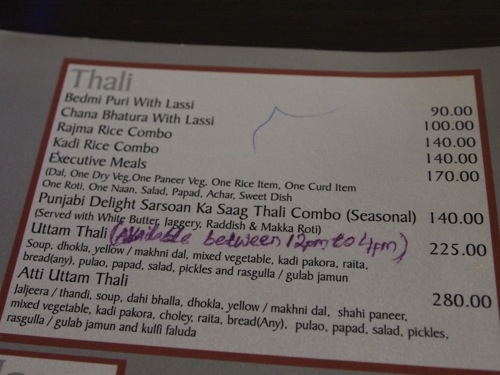 Thali
Bedmi Puri With Lassi 90.00
Chana Bhatura With Lassi 100.00
Rajma Rice Combo 140.00
Kadi Rice Combo 140.00
Executive Meals 170.00
(Dal, One Dry Veg,One Paneer Veg, One Rice Item, One Curd Item
One Roti, One Naan, Salad, Papad, Achar, Sweet Dish
Punjabi Delight Sarsoan Ka Saag Thali Combo (Seasonal) 140.00
(Served with White Butter, Jaggery, Raddish & Makka Roti)
Uttam Thali (Available between 12pm to 4pm) 225.00
Soup, dhokla, yellow / makhni dal, mixed vegetable, kadi pakora, raita,
bread(any), pulao, papad, salad, pickles and rasgulla / gulab jamun
Atti Uttam Thali 280.00
Jaljeera / thandi, soup, dahi bhalla, dhokla, yellow / makhni dal, shahi paneer,
mixed vegetable, kadi pakora, choley, raita, bread(Any), pulao, papad, salad, pickles,
rasgulla / gulab jamun and kulfi faluda